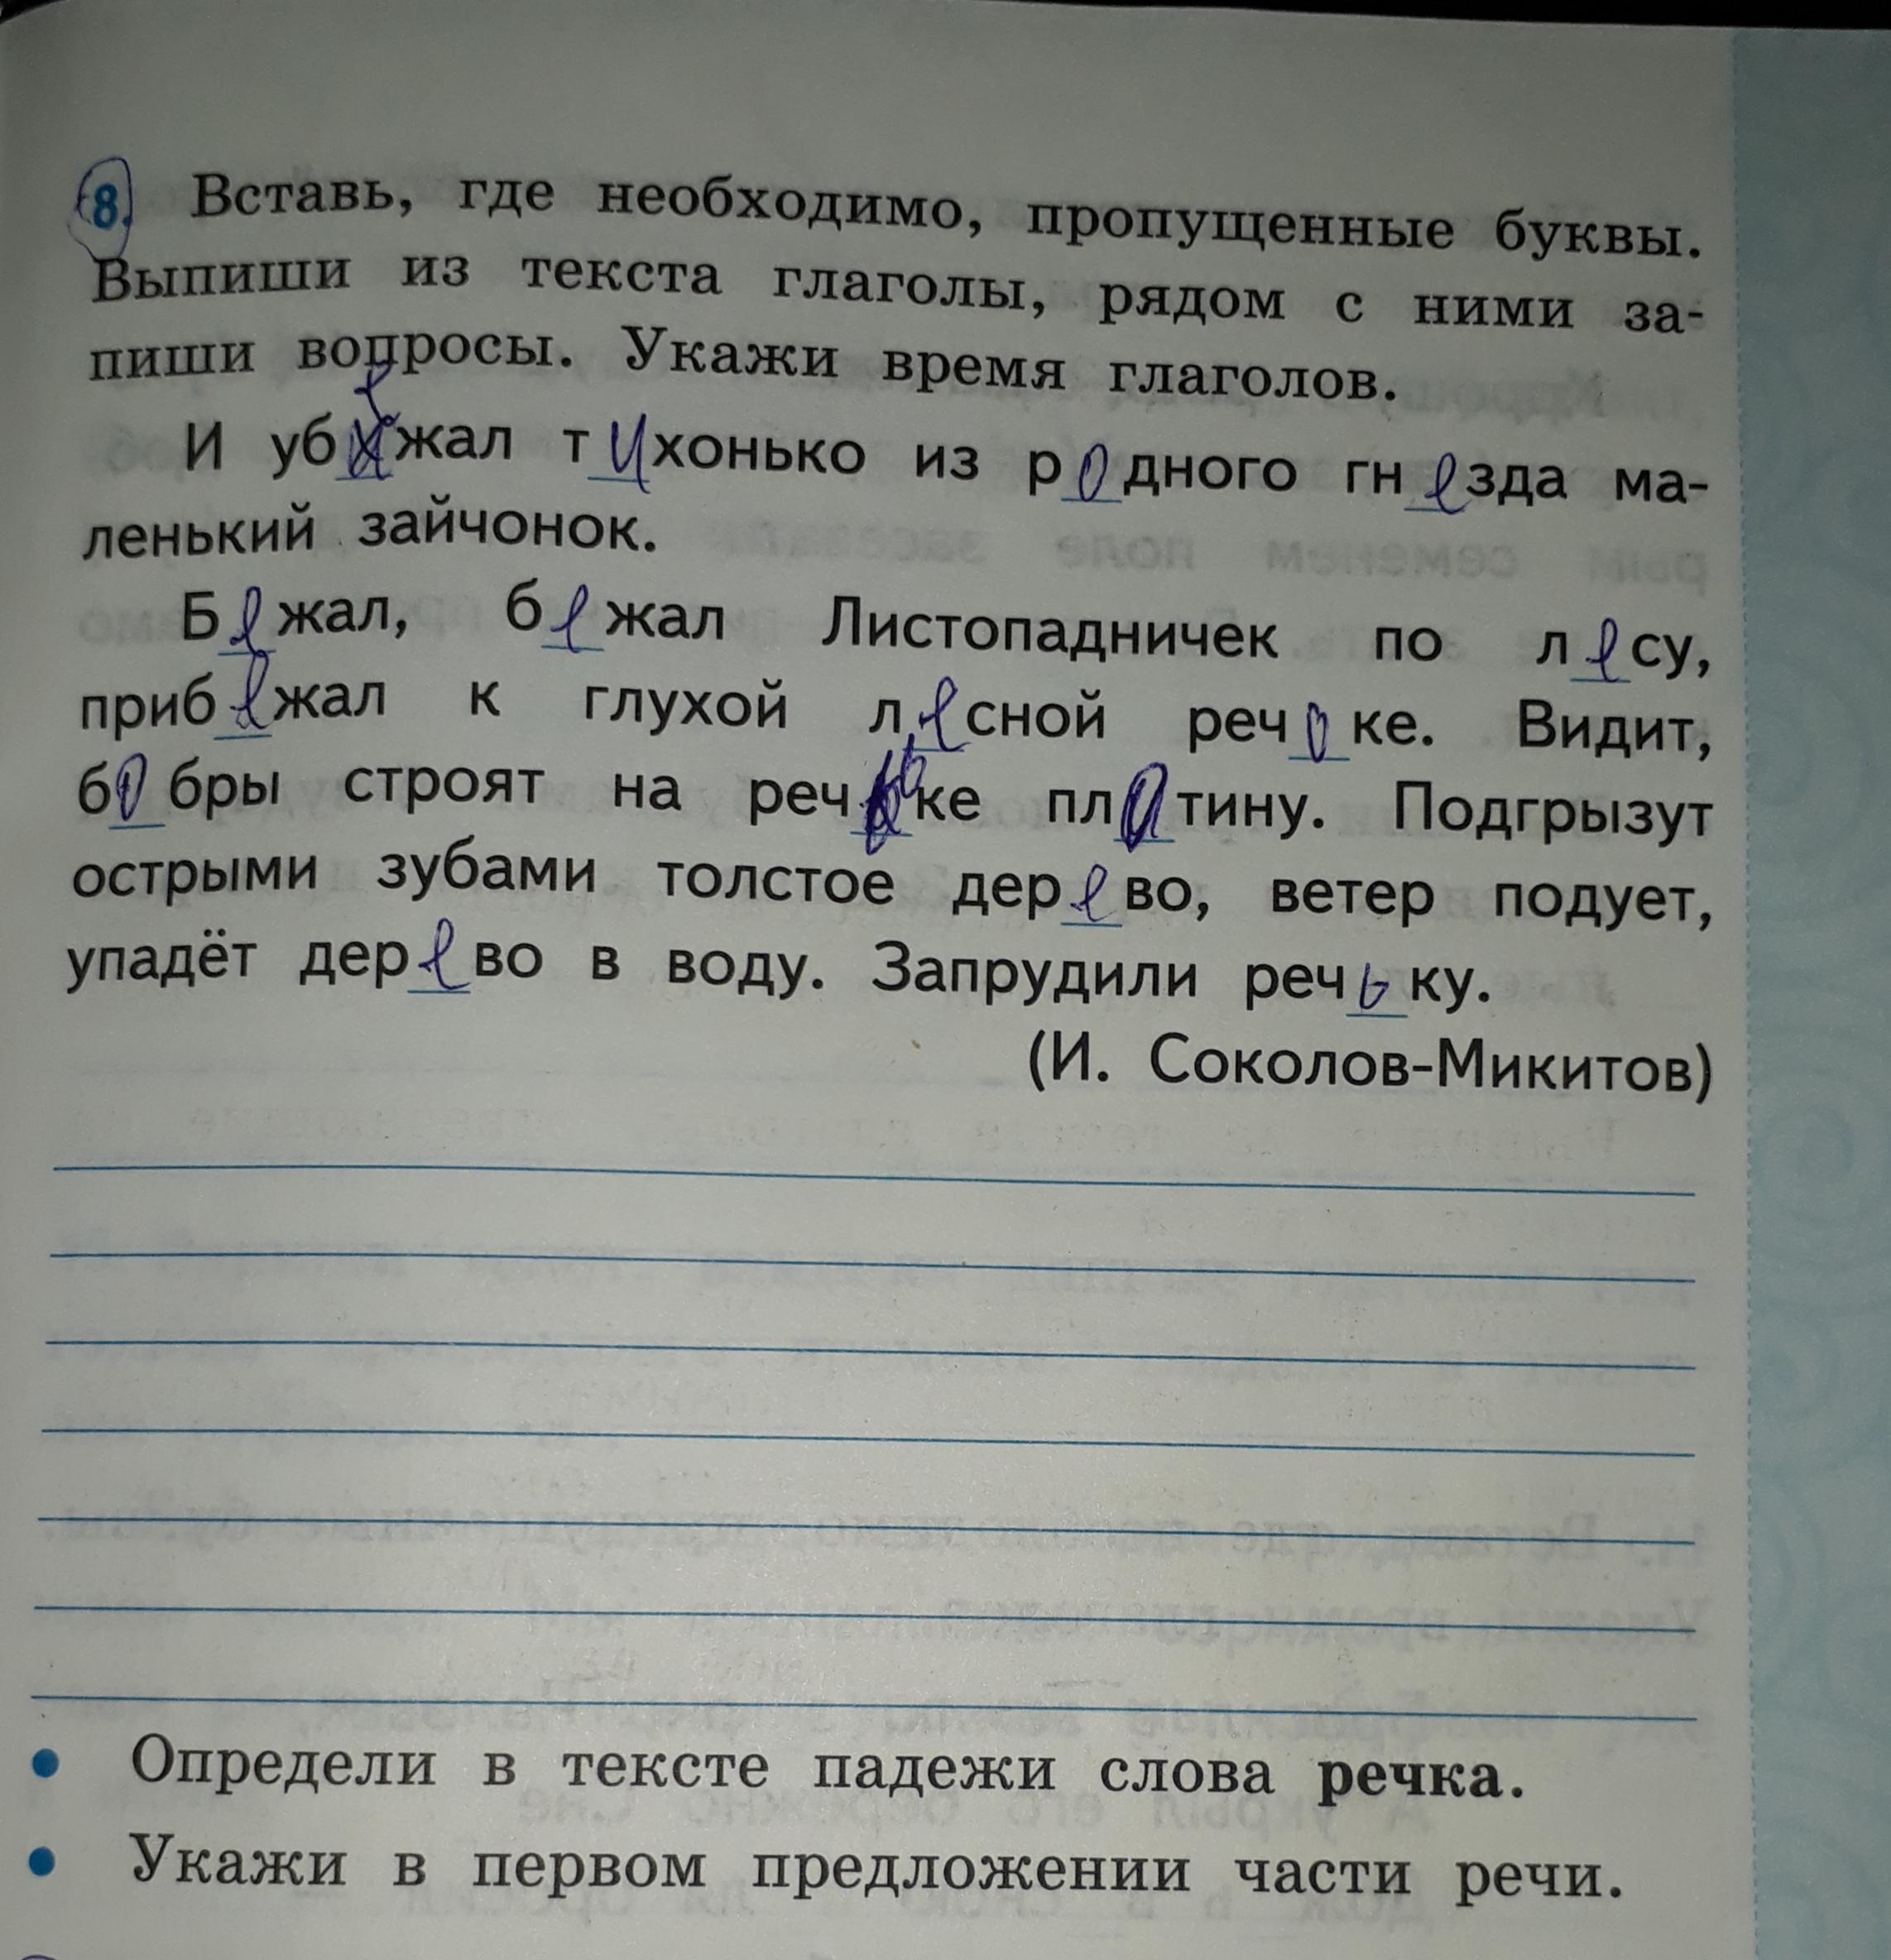 8. Вставь, где необходимо, пропущенные буквы.
Выпиши из текста глаголы, рядом с ними за-
пиши вопросы. Укажи время глаголов.
И убежал тихонько из родного гнезда ма-
ленький зайчонок.
Бежал, бежал Листопадничек по лесу,
прибежал к глухой лесной речоке. Видит,
бобры строят на речьке плотину. Подгрызут
острыми зубами толстое дерево, ветер подует,
упадёт дерево в воду. Запрудили речьку.
(И. Соколов-Микитов)
• Определи в тексте падежи слова речка.
• Укажи в первом предложении части речи.